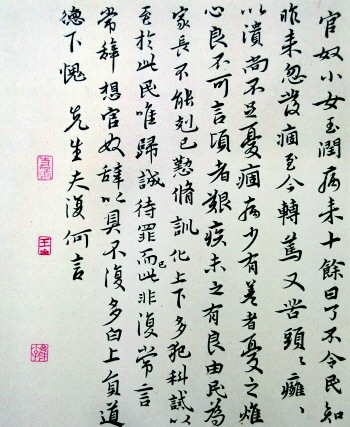 官奴小女玉潤病来十餘日了不令民知
昨来忽發痼至今轉篤又苦頭〻癰〻
以潰尚不足憂痼病少有差者憂之燋
心良不可言頃者艱疾未之有良由民為
家長不能剋己懃脩訓化上下多犯科誡以
至於此民唯歸誠待罪而已此非復常言
常辭想官奴辭以具不復多白上負道
德下愧先生夫復何言